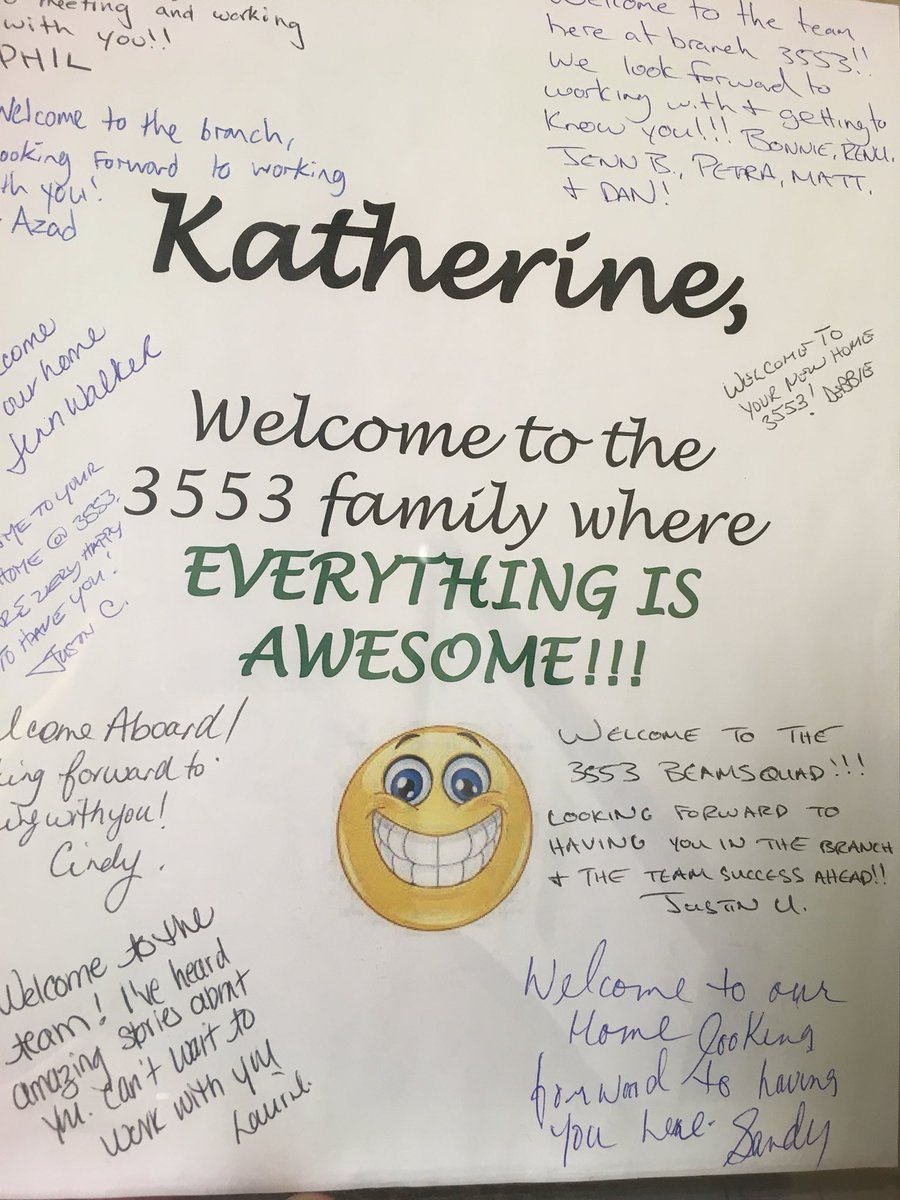 meeting and working
with you!!
PHIL
Welcome to the team
here at branch 3553!!
We look forward to
working with & getting to
know you!!! BONNIE, RENU,
JENN B., PETRA, MATT,
& DAN!
Welcome to the branch,
ooking forward to working
th you!
Azad
Katherine,
come
our home
Jenn Walker
WELCOME TO
YOUR NEW HOME
3553! DEBBIE
Welcome to the
3553 family where
EVERYTHING IS
AWESOME!!!
ME TO YOUR
HOME @ 3553.
RE VERY HAPPY
TO HAVE YOU!
JUSTIN C.
lcome Aboard!
ing forward to
ing with you!
Cindy.
WELCOME TO THE
3553 BEAMSQUAD!!!
LOOKING FORWARD TO
HAVING YOU IN THE BRANCH
& THE TEAM SUCCESS AHEAD!!
JUSTIN U.
Welcome to the
team! I've heard
amazing stories about
you. Can't wait to
work with you
Laurie.
Welcome to our
Home looking
forward to having
you here. Sandy